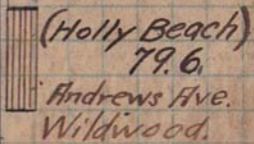 (Holly Beach)
79.6.
Andrews Ave.
Wildwood.